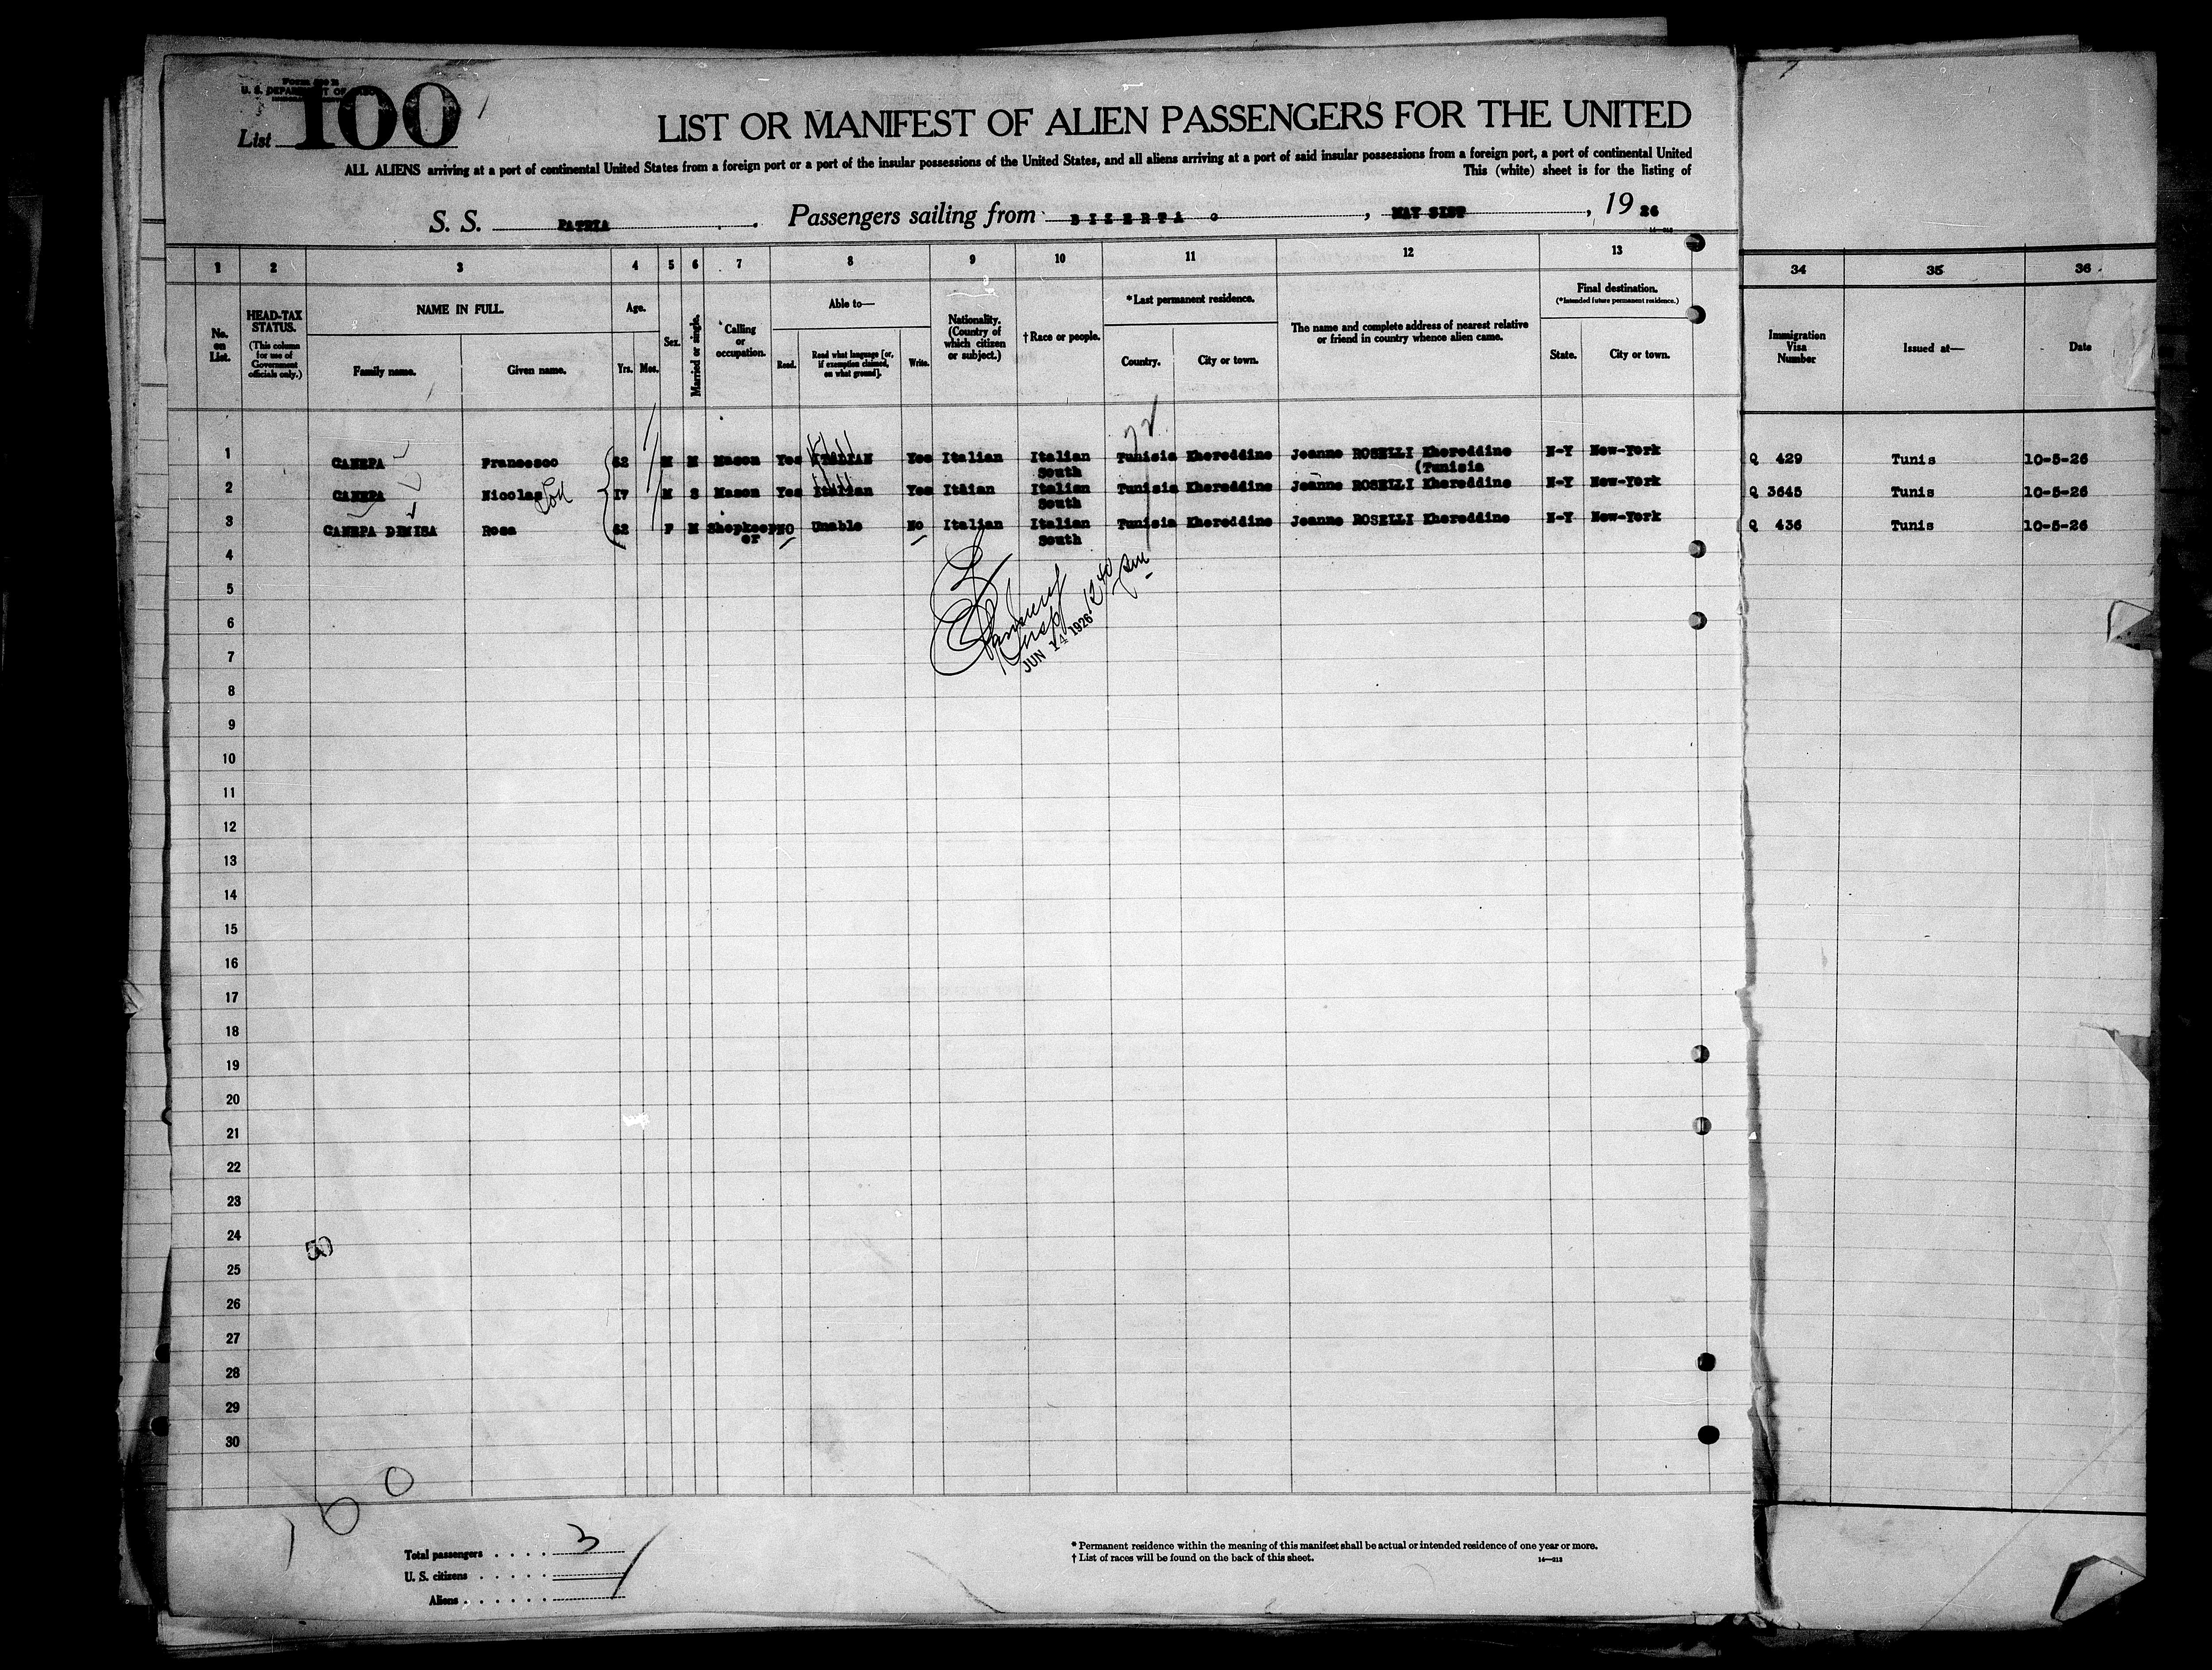 Form 500 B
U. S. DEPARTMENT OF LABOR
List 100
LIST OR MANIFEST OF ALIEN PASSENGERS FOR THE UNITED
ALL ALIENS arriving at a port of continental United States from a foreign port or a port of the insular possessions of the United States, and all aliens arriving at a port of said insular possessions from a foreign port, a port of continental United
This (white) sheet is for the listing of
S. S. PATRIA. Passengers sailing from BIZERTA, MAY 31ST, 19 26
1 2 3 4 5 6 7 8 9 10 11 12 13 34 35 36
No. on List.
HEAD-TAX STATUS. (This column for use of Government officials only.)
NAME IN FULL.
Family name. Given name.
Age.
Yrs. Mos.
Sex.
Married or single.
Calling or occupation.
Able to—
Read. Read what language [or, if exemption claimed, on what ground]. Write.
Nationality. (Country of which citizen or subject.)
†Race or people.
*Last permanent residence.
Country. City or town.
The name and complete address of nearest relative or friend in country whence alien came.
Final destination.
(*Intended future permanent residence.)
State. City or town.
Immigration Visa Number
Issued at—
Date
72
1 CANEPA Francesco 52 M M Mason Yes ITALIAN Yes Italian Italian South Tunisia Khereddine Jeanne ROSELLI Khereddine (Tunisia N-Y New-York Q 429 Tunis 10-5-26
2 CANEPA Nicolas 17 M S Mason Yes Italian Yes Itaian Italian South Tunisia Khereddine Jeanne ROSELLI Khereddine N-Y New-York Q 3645 Tunis 10-5-26
3 CANEPA DEMISA Rosa 52 F M Shopkeeper NO Unable No Italian Italian South Tunisia Khereddine Jeanne ROSELLI Khereddine N-Y New-York Q 436 Tunis 10-5-26
4
5
6
JUN 14 1926
7
8
9
10
11
12
13
14
15
16
17
18
19
20
21
22
23
24
50
25
26
27
28
29
30
100
Total passengers . . . . 3
U. S. citizens . . . . .
Aliens . . . . . .
* Permanent residence within the meaning of this manifest shall be actual or intended residence of one year or more.
† List of races will be found on the back of this sheet.